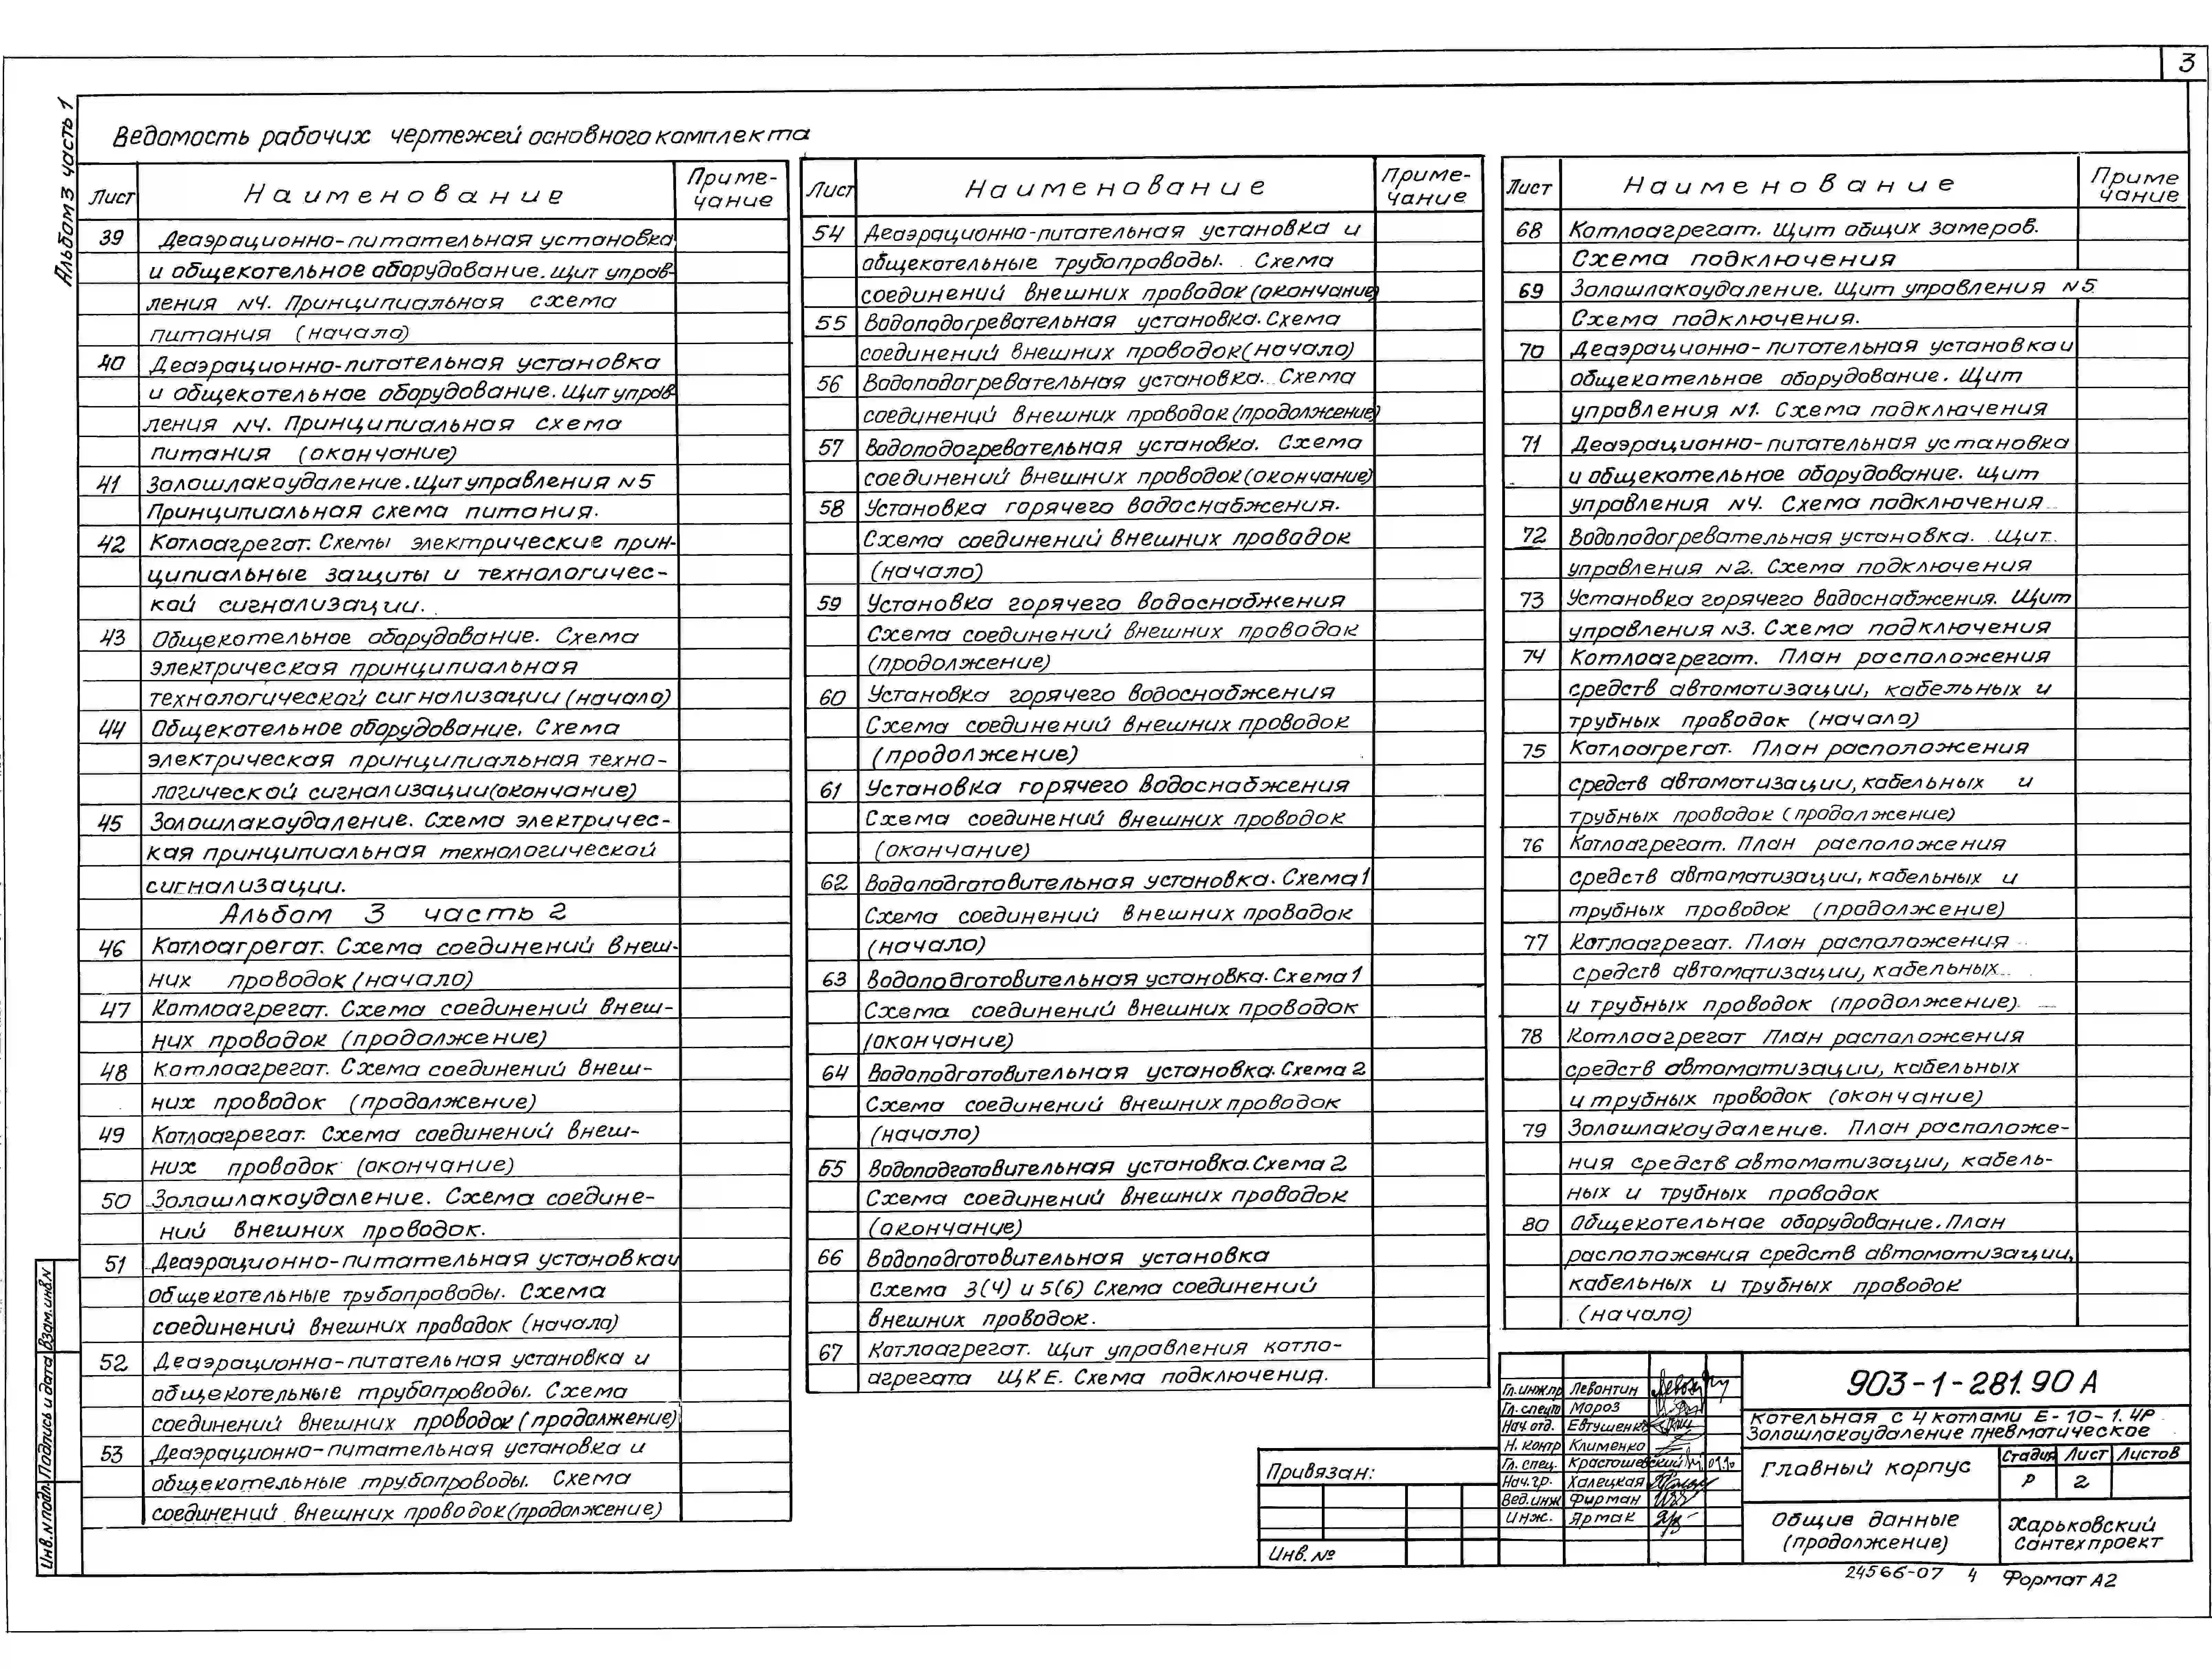 3
Альбом 3 часть 1
Ведомость рабочих чертежей основного комплекта
Лист
Наименование
Приме-
чание
39
Деаэрационно-питательная установка
и общекотельное оборудование. Щит управ-
ления N4. Принципиальная схема
питания (начало)
40
Деаэрационно-питательная установка
и общекотельное оборудование. Щит управ-
ления N4. Принципиальная схема
питания (окончание)
41
Золошлакоудаление. Щит управления N5
Принципиальная схема питания.
42
Котлоагрегат. Схемы электрические прин-
ципиальные защиты и технологичес-
кой сигнализации.
43
Общекотельное оборудование. Схема
электрическая принципиальная
технологической сигнализации (начало)
44
Общекотельное оборудование. Схема
электрическая принципиальная техно-
логической сигнализации (окончание)
45
Золошлакоудаление. Схема электричес-
кая принципиальная технологической
сигнализации.
Альбом 3 часть 2
46
Котлоагрегат. Схема соединений внеш-
них проводок (начало)
47
Котлоагрегат. Схема соединений внеш-
них проводок (продолжение)
48
Котлоагрегат. Схема соединений внеш-
них проводок (продолжение)
49
Котлоагрегат. Схема соединений внеш-
них проводок (окончание)
50
Золошлакоудаление. Схема соедине-
ний внешних проводок.
51
Деаэрационно-питательная установка и
общекотельные трубопроводы. Схема
соединений внешних проводок (начало)
52
Деаэрационно-питательная установка и
общекотельные трубопроводы. Схема
соединений внешних проводок (продолжение)
53
Деаэрационно-питательная установка и
общекотельные трубопроводы. Схема
соединений внешних проводок (продолжение)
Лист
Наименование
Приме-
чание
54
Деаэрационно-питательная установка и
общекотельные трубопроводы. Схема
соединений внешних проводок (окончание)
55
Водоподогревательная установка. Схема
соединений внешних проводок (начало)
56
Водоподогревательная установка. Схема
соединений внешних проводок (продолжение)
57
Водоподогревательная установка. Схема
соединений внешних проводок (окончание)
58
Установка горячего водоснабжения.
Схема соединений внешних проводок
(начало)
59
Установка горячего водоснабжения
Схема соединений внешних проводок
(продолжение)
60
Установка горячего водоснабжения
Схема соединений внешних проводок
(продолжение)
61
Установка горячего водоснабжения
Схема соединений внешних проводок
(окончание)
62
Водоподготовительная установка. Схема 1
Схема соединений внешних проводок
(начало)
63
Водоподготовительная установка. Схема 1
Схема соединений внешних проводок
(окончание)
64
Водоподготовительная установка. Схема 2
Схема соединений внешних проводок
(начало)
65
Водоподготовительная установка. Схема 2
Схема соединений внешних проводок
(окончание)
66
Водоподготовительная установка
Схема 3(4) и 5(6) Схема соединений
внешних проводок.
67
Котлоагрегат. Щит управления котло-
агрегата ЩКЕ. Схема подключения.
Лист
Наименование
Приме
чание
68
Котлоагрегат. Щит общих замеров.
Схема подключения
69
Золошлакоудаление. Щит управления N5
Схема подключения.
70
Деаэрационно-питательная установка и
общекотельное оборудование. Щит
управления N1. Схема подключения
71
Деаэрационно-питательная установка
и общекотельное оборудование. Щит
управления N4. Схема подключения
72
Водоподогревательная установка. Щит
управления N2. Схема подключения
73
Установка горячего водоснабжения. Щит
управления N3. Схема подключения
74
Котлоагрегат. План расположения
средств автоматизации, кабельных и
трубных проводок (начало)
75
Котлоагрегат. План расположения
средств автоматизации, кабельных и
трубных проводок (продолжение)
76
Котлоагрегат. План расположения
средств автоматизации, кабельных и
трубных проводок (продолжение)
77
Котлоагрегат. План расположения
средств автоматизации, кабельных
и трубных проводок (продолжение)
78
Котлоагрегат План расположения
средств автоматизации, кабельных
и трубных проводок (окончание)
79
Золошлакоудаление. План расположе-
ния средств автоматизации, кабель-
ных и трубных проводок
80
Общекотельное оборудование. План
расположения средств автоматизации,
кабельных и трубных проводок
(начало)
Инв. N подл.
Подпись и дата
Взам. инв. N
Привязан:
Инв. №
Гл. инж. пр Левонтин
Гл. спец то Мороз
Нач. отд. Евтушенко
Н. контр Клименко
Гл. спец. Крастошевский
Нач. гр. Халецкая
Вед. инж Фирман
Инж. Ярмак
903-1-281.90 А
Котельная с 4 котлами Е-10-1.4Р
Золошлакоудаление пневматическое
Главный корпус
Стадия Лист Листов
Р 2
Общие данные
(продолжение)
Харьковский
Сантехпроект
24566-07 4 Формат А2